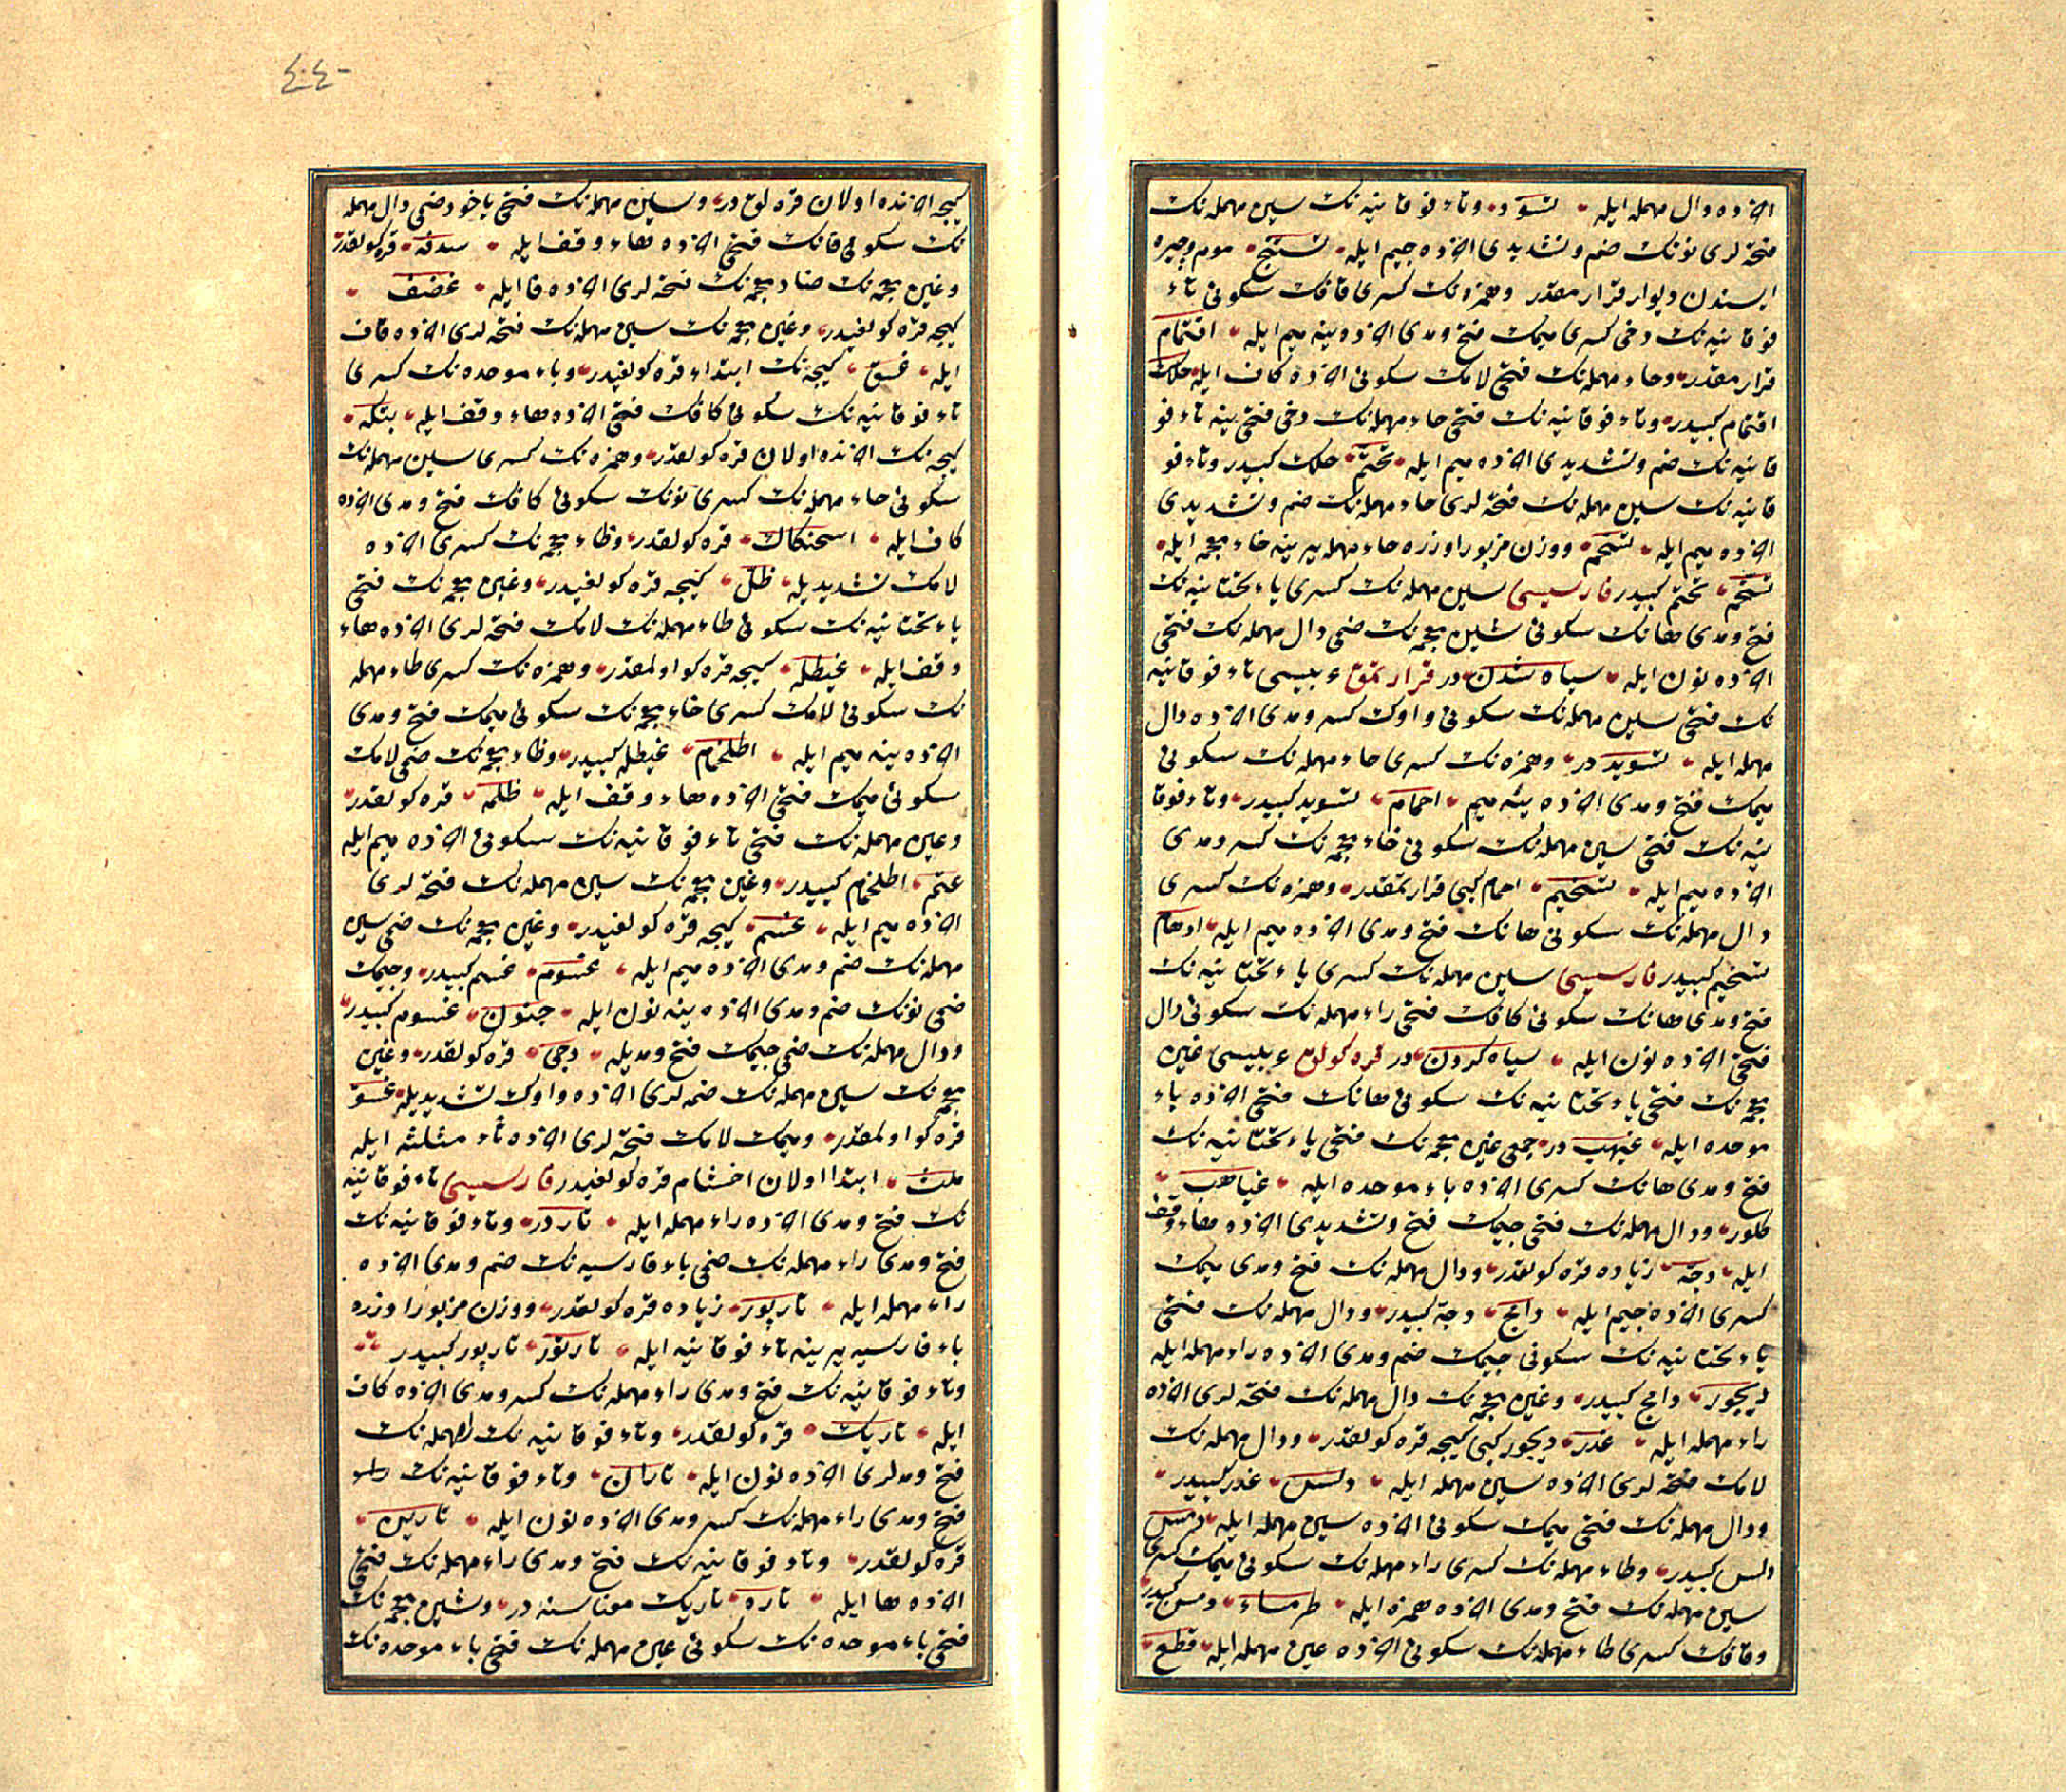 اخرده دال مهمله ایله تسود وتاء فوقانیه نك سین مهمله نك
فتحه لری نونك ضم وتشدیدی اخرده جیم ایله تسنج موم وجیره
ایسندن دیوار قرارمقدر وهمزه نك كسری قافك سكونی تاء
فوقانیه نك دخی كسری میمك فتح ومدی اخرده ینه میم ایله اقتمام
قرارمقدر وحاء مهمله نك فتحی لامك سكونی اخرده كاف ایله حلك
اقتمام كبیدر وتاء فوقانیه نك فتحی حاء مهمله نك دخی فتحی ینه تاء فو
قانیه نك ضم وتشدیدی اخرده میم ایله تحتم حلك كبیدر وتاء فو
قانیه نك سین مهمله نك فتحه لری حاء مهمله نك ضم وتشدیدی
اخرده میم ایله تسحم ووزن مزبور اوزره حاء مهمله یرینه خاء معجمه ایله
تسخم تحتم كبیدر فارسیسی سین مهمله نك كسری یاء تحتانیه نك
فتح ومدی هانك سكونی شین معجمه نك ضمی دال مهمله نك فتحی
اخرده نون ایله سیاه شدن در قرارتمق عربیسی تاء فوقانیه
نك فتحی سین مهمله نك سكونی واوك كسر ومدی اخرده دال
مهمله ایله تسوید در وهمزه نك كسری حاء مهمله نك سكونی
میمك فتح ومدی اخرده ینه میم احمام تسوید كبیدر وتاء فوقا
نیه نك فتحی سین مهمله نك سكونی خاء معجمه نك كسر ومدی
اخرده میم ایله تسخیم احمام كبی قرارتمقدر وهمزه نك كسری
دال مهمله نك سكونی هانك فتح ومدی اخرده میم ایله ادهام
تسخیم كبیدر فارسیسی سین مهمله نك كسری یاء تحتانیه نك
فتح ومدی هانك سكونی كافك فتحی راء مهمله نك سكونی دال
فتحی اخرده نون ایله سیاه كردن در قره كولق عربیسی غین
معجمه نك فتحی یاء تحتانیه نك سكونی هانك فتحی اخرده باء
موحده ایله غیهب در جمعی غین معجمه نك فتحی یاء تحتانیه نك
فتح ومدی هانك كسری اخرده باء موحده ایله غیاهب
كلور ودال مهمله نك فتحی جیمك فتح وتشدیدی اخرده هاء وقف
ایله دجه زیاده قره كولقدر ودال مهمله نك فتح ومدی میمك
كسری اخرده جیم ایله دامج دجه كبیدر ودال مهمله نك فتحی
یاء تحتانیه نك سكونی جیمك ضم ومدی اخرده راء مهمله ایله
دیجور دامج كبیدر وغین معجمه نك دال مهمله نك فتحه لری اخرده
راء مهمله ایله غدر دیجور كبی كیجه قره كولقدر ودال مهمله نك
لامك فتحه لری اخرده سین مهمله ایله دلس غدر كبیدر
ودال مهمله نك فتحی میمك سكونی اخرده سین مهمله ایله دمس
دلس كبیدر وطاء مهمله نك كسری راء مهمله نك سكونی میمك كسری
سین مهمله نك فتح ومدی اخرده همزه ایله طرمساء دمس كبیدر
وقافك كسری طاء مهمله نك سكونی اخرده عین مهمله ایله قطع
٤٤٠
كیجه اخرنده اولان قره لق در وسین مهمله نك فتحی یاخود ضمی دال مهمله
نك سكونی فانك فتحی اخرده هاء وقف ایله سدفه قره كولقدر
وغین معجمه نك ضاد معجمه نك فتحه لری اخرده فا ایله غضف
كیجه قره كولغیدر وغین معجمه نك سین مهمله نك فتحه لری اخرده قاف
ایله غسق كیجه نك ابتداء قره كولغیدر وباء موحده نك كسری
تاء فوقانیه نك سكونی كافك فتحی اخرده هاء وقف ایله بتكه
كیجه نك اخرنده اولان قره كولقدر وهمزه نك كسری سین مهمله نك
سكونی حاء مهمله نك كسری نونك سكونی كافك فتح ومدی اخرده
كاف ایله اسحنكاك قره كولقدر وظاء معجمه نك كسری اخرده
لامك تشدیدیله ظل كیجه قره كولغیدر وغین معجمه نك فتحی
یاء تحتانیه نك سكونی طاء مهمله نك لامك فتحه لری اخرده هاء
وقف ایله غیطله كیجه قره كو اولمقدر وهمزه نك كسری طاء مهمله
نك سكونی لامك كسری خاء معجمه نك سكونی میمك فتح ومدی
اخرده ینه میم ایله اطلخمام غیطله كبیدر وظاء معجمه نك ضمی لامك
سكونی میمك فتحی اخرده هاء وقف ایله ظلمه قره كولقدر
وعین مهمله نك فتحی تاء فوقانیه نك سكونی اخرده میم ایله
عتم اطلخمام كبیدر وغین معجمه نك سین مهمله نك فتحه لری
اخرده میم ایله غسم كیجه قره كولغیدر وغین معجمه نك ضمی سین
مهمله نك ضم ومدی اخرده میم ایله غسوم غسم كبیدر وجیمك
ضمی نونك ضم ومدی اخرده ینه نون ایله جنون غسوم كبیدر
ودال مهمله نك ضمی جیمك فتح ومدیله دجی قره كولقدر وغین
معجمه نك سین مهمله نك ضمه لری اخرده واوك تشدیدیله غسو
قره كو اولمقدر ومیمك لامك فتحه لری اخرده ثاء مثلثه ایله
ملث ابتدا اولان اخشام قره كولغیدر فارسیسی تاء فوقانیه
نك فتح ومدی اخرده راء مهمله ایله تار در وتاء فوقانیه نك
فتح ومدی راء مهمله نك ضمی باء فارسیه نك ضم ومدی اخرده
راء مهمله ایله تارپور زیاده قره كولقدر ووزن مزبور اوزره
باء فارسیه یرینه تاء فوقانیه ایله تارتور تارپور كبیدر
وتاء فوقانیه نك فتح ومدی راء مهمله نك كسر ومدی اخرده كاف
ایله تاریك قره كولقدر وتاء فوقانیه نك راء مهمله نك
فتح ومدلری اخرده نون ایله تاران وتاء فوقانیه نك راء
فتح ومدی راء مهمله نك كسر ومدی اخرده نون ایله تارین
قره كولقدر وتاء فوقانیه نك فتح ومدی راء مهمله نك فتحی
اخرده ها ایله تاره تاریك معناسنه در وشین معجمه نك
فتحی باء موحده نك سكونی عین مهمله نك فتحی باء موحده نك